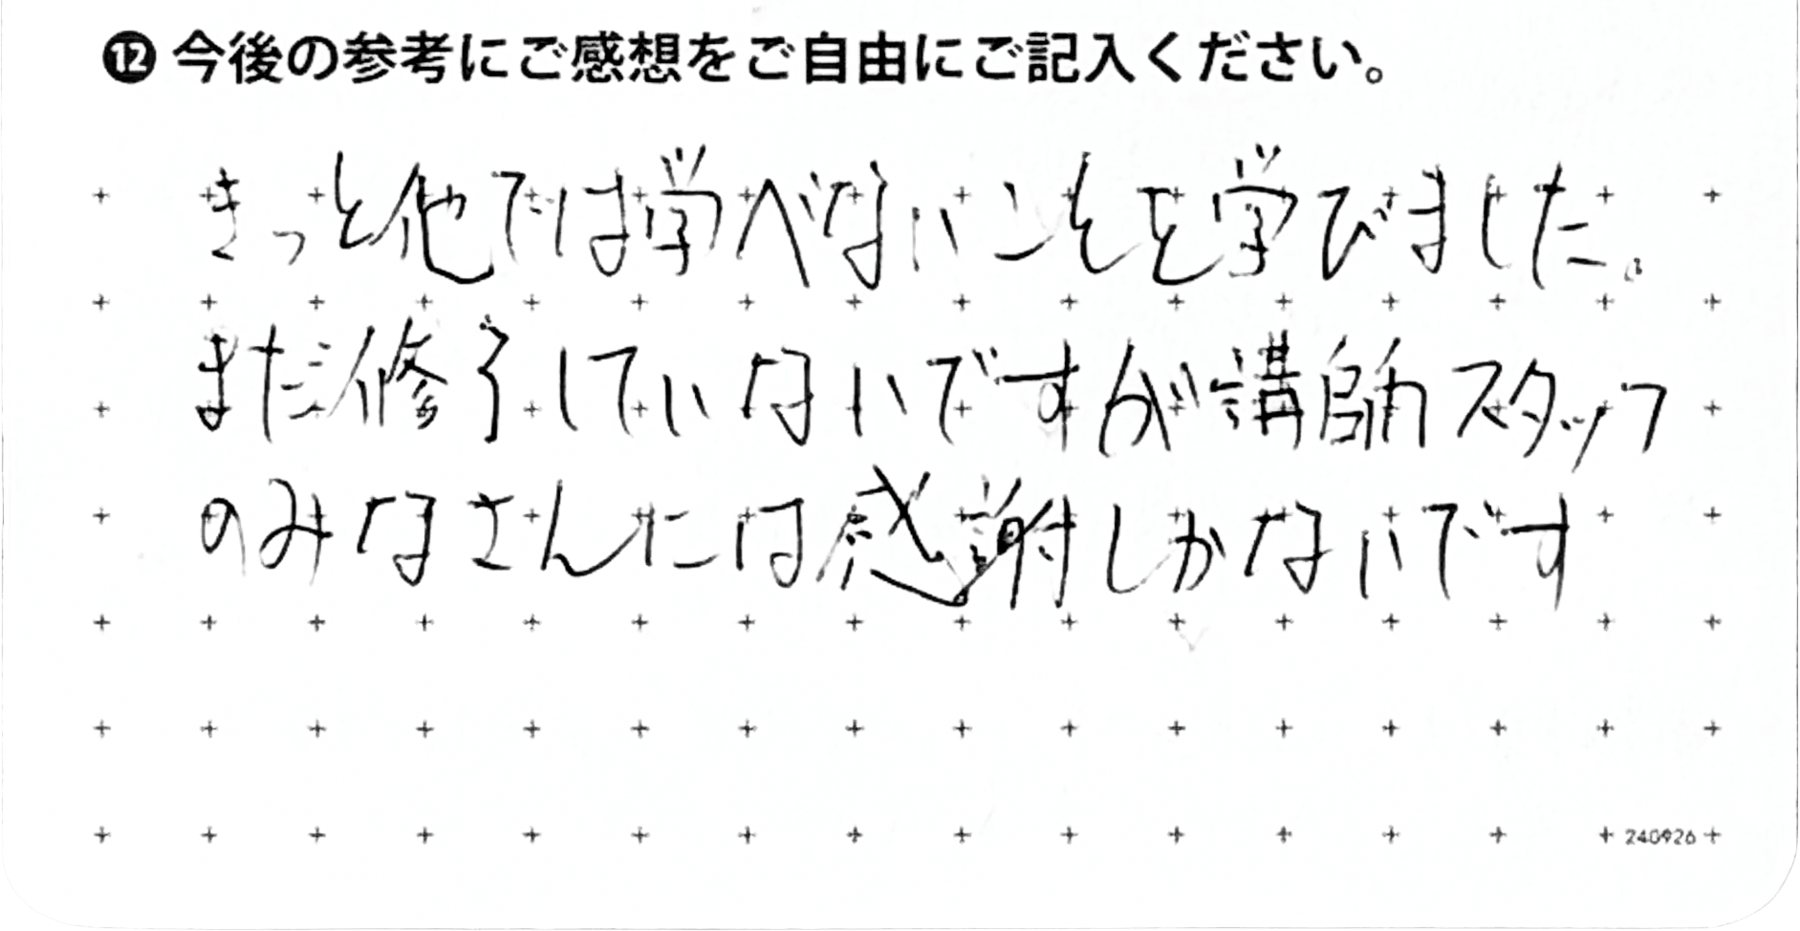 ⓬ 今後の参考にご感想をご自由にご記入ください。
きっと他では学べないことを学びました。
まだ修了していないですが講師スタッフ
のみなさんには感謝しかないです
240926